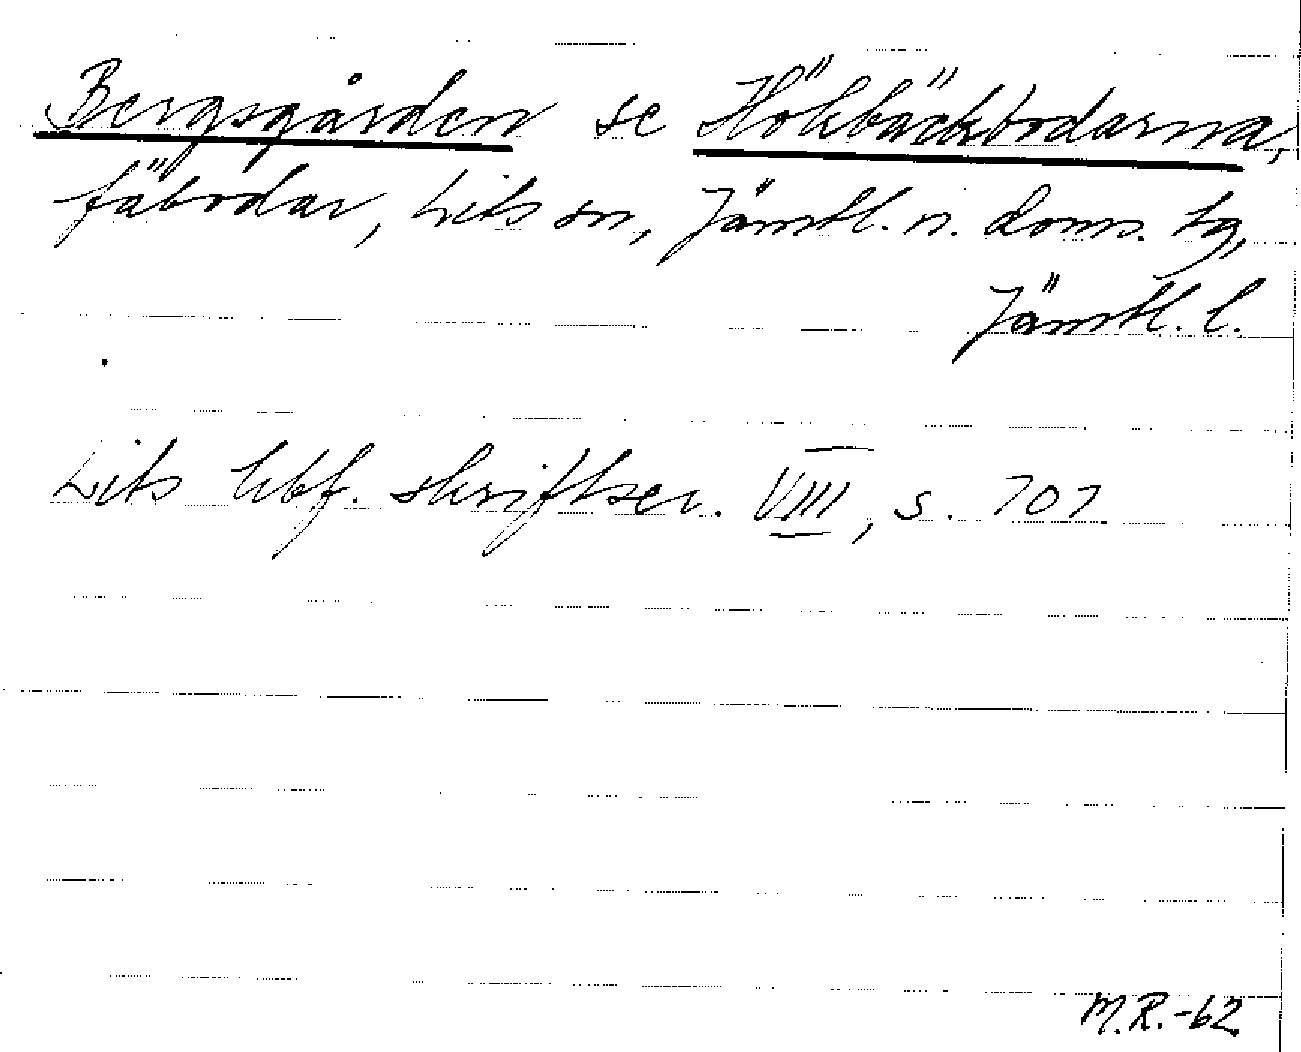 Bergsgården se Hökbäckbodarna,
fäbodar, Lits sn, Jämtl. n. doms. tg,
Jämtl. l.
Lits hbf. skriftser. VIII, s. 707
M.R.-62